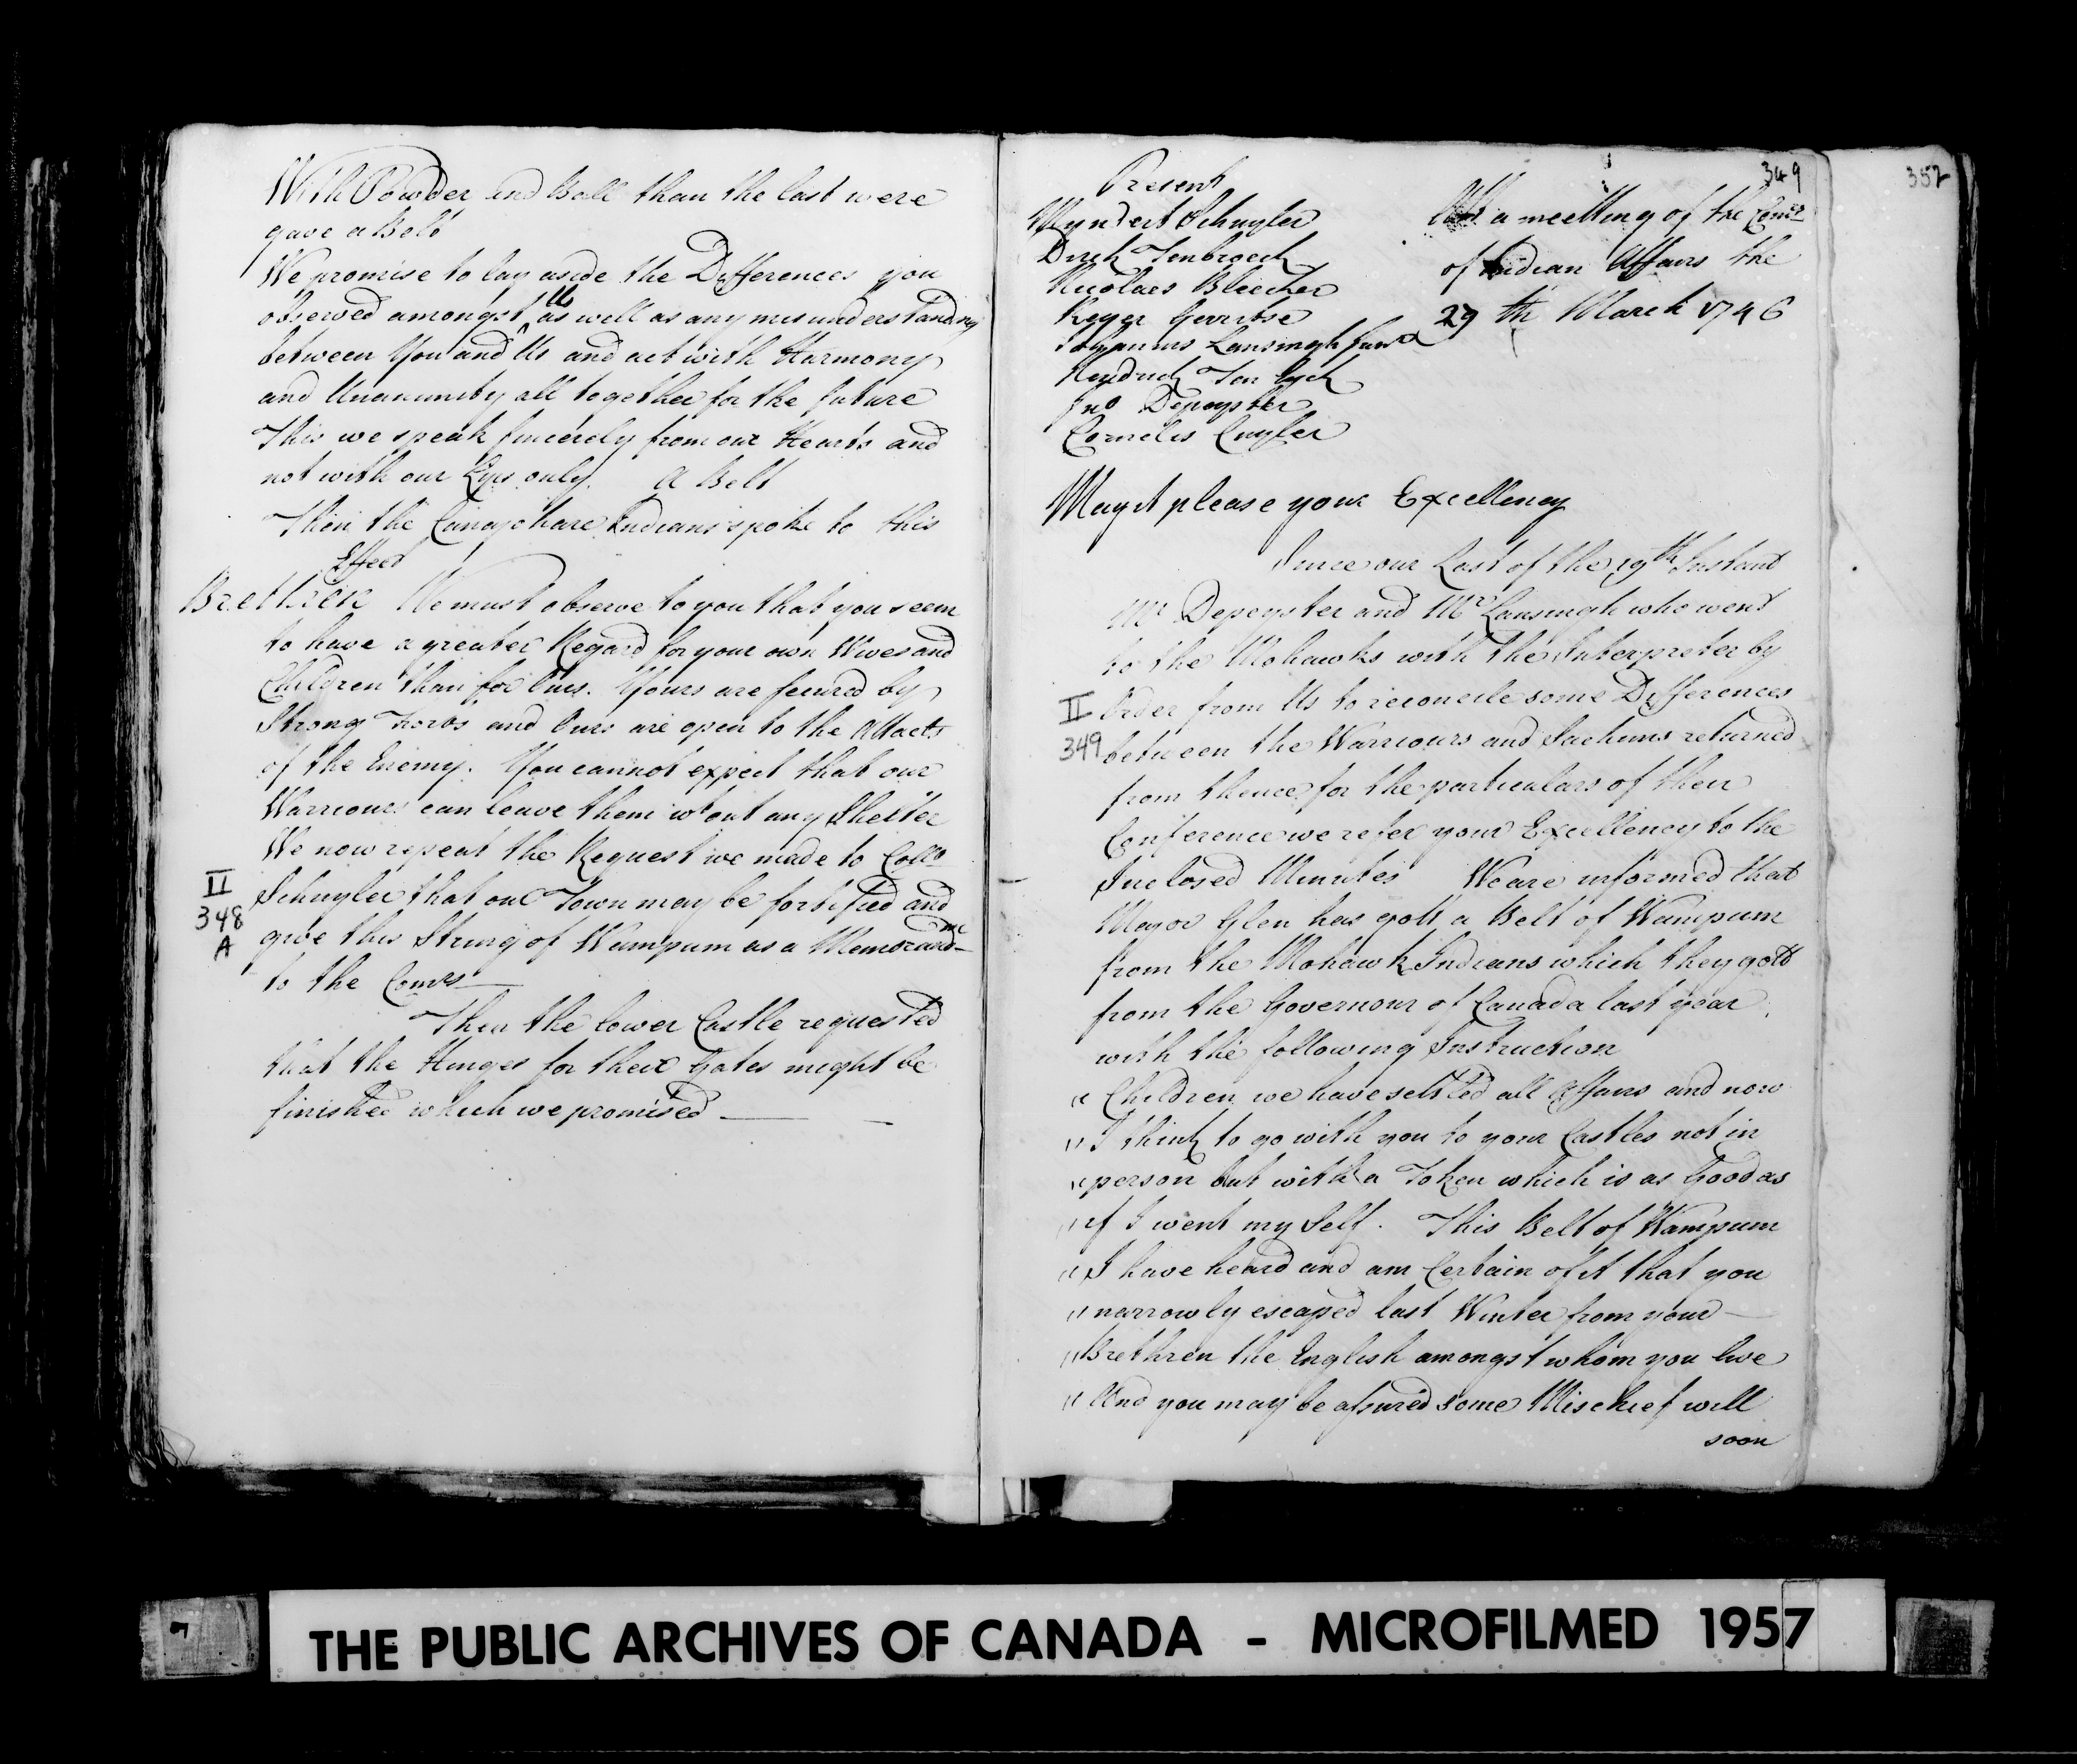 With Powder and Ball than the last were
gave a Belt
We promise to lay aside the Differences you
observed amongst Us as well as any misunderstanding
between You and Us and act with Harmony
and Unanimity all together for the future
This we speak sincerely from our Hearts and
not with our Lips only. A Belt
Then the Canajohare Indians spoke to this
Effect
Brethren We must observe to you that you seem
to have a greater Regard for your own Wives and
Children than for Ours. Yours are secured by
Strong Forts and Ours are open to the Attacts
of the Enemy. You cannot expect that our
Warriours can leave them wt out any Shelter
We now repeat the Request we made to Collo
II
348
A
Schuyler that our Town may be fortified and
give this String of Wampum as a Memorand
to the Comrs
Then the lower Castle requested
that the Hinges for their Gates might be
finished which we promised
349
352
Present
Myndert Schuyler
Dirck Tenbroeck
Nicolaes Bleecker
Ryer Gerritse
Johannis Lansingh Junr
Hendrick Ten Eyck
Jno Depeyster
Cornelis Cuyler
Att a meetting of the Comrs
of Indian Affairs the
29 th March 1746
May it please your Excellency
Since our Last of the 19th Instant
Mr Depeyster and Mr Lansingh who went
to the Mohawks with the Interpreter by
II
349
Order from Us to reconcile some Differences
between the Warriours and Sachims returned
from thence for the particulars of their
Conference we refer your Excellency to the
Inclosed Minutes We are informed that
Major Glen has gott a Belt of Wampum
from the Mohawk Indians which they gott
from the Governour of Canada last year
with the following Instruction
" Children we have settled all Affairs and now
" I think to go with you to your Castles not in
" person but with a Token which is as Good as
" if I went my Self. This Belt of Wampum
" I have heard and am Certain of it that you
" narrowly escaped last Winter from your
" Brethren the English amongst whom you live
" And you may be assured some Mischief will
soon
THE PUBLIC ARCHIVES OF CANADA - MICROFILMED 1957